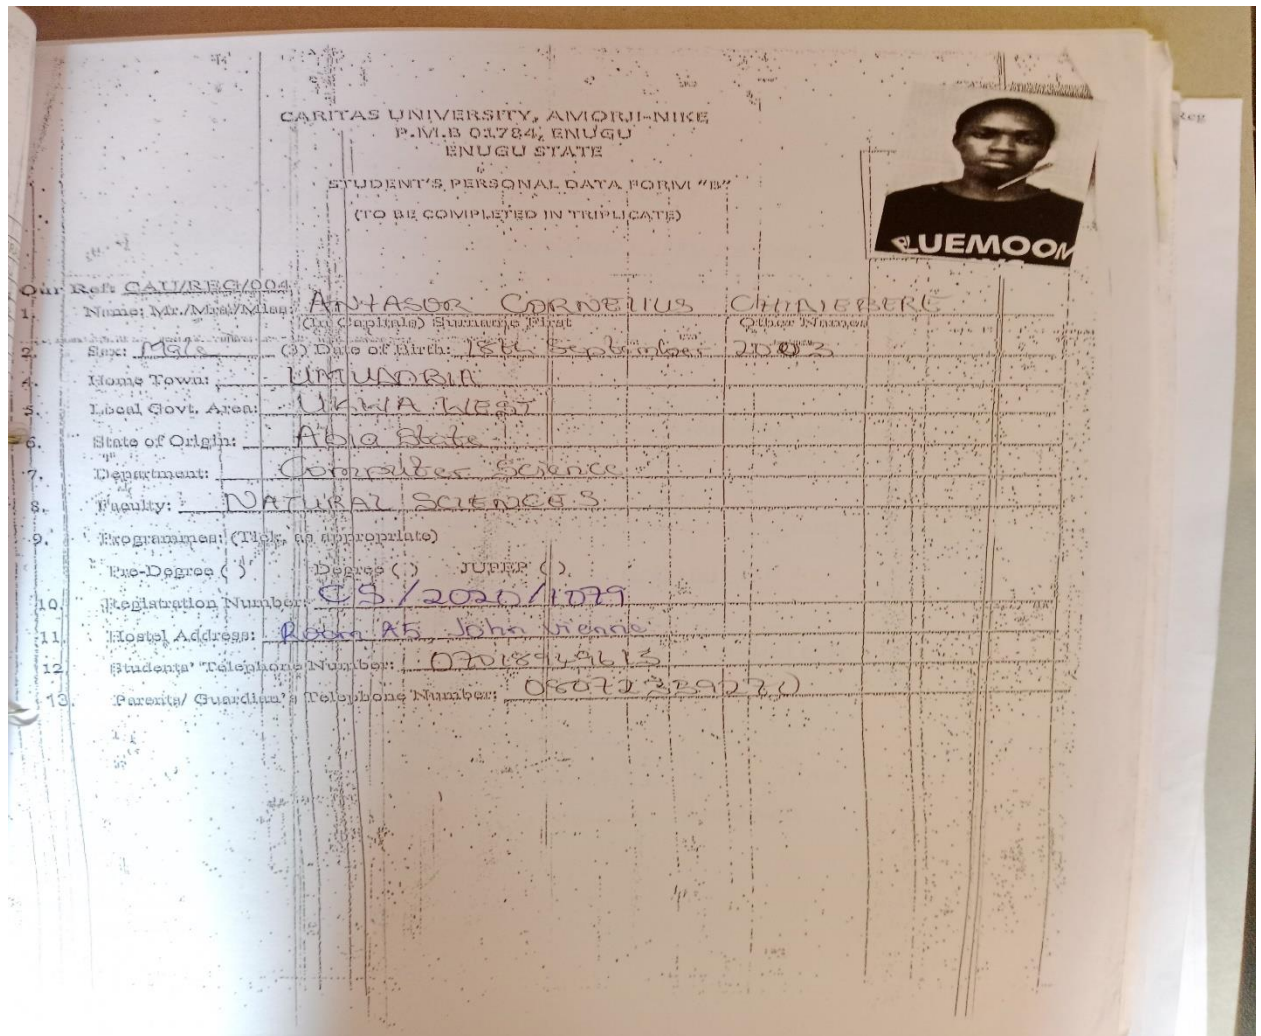 CARITAS UNIVERSITY, AMORJI-NIKE
P.M.B 01784, ENUGU
ENUGU STATE
STUDENT'S PERSONAL DATA FORM "B"
(TO BE COMPLETED IN TRIPLICATE)
BLUEMOON
Reg
Our Ref: CAU/REG/004
1. Name: Mr./Mrs./Miss: CORNELIUS
(In Capitals) Surname First Other Names
2. Sex: Male (3) Date of Birth: 18th September 2003
4. Home Town:
5. Local Govt. Area: UKWA WEST
6. State of Origin: Abia State
7. Department: Computer Science
8. Faculty: NATURAL SCIENCES
9. Programmes: (Tick, as appropriate)
Pre-Degree ( ) Degree ( ) JUPEB ( )
10. Registration Number: CS/2020/1079
11. Hostel Address: Room A5, John Vienne
12. Students' Telephone Number:
13. Parents/ Guardian's Telephone Number: